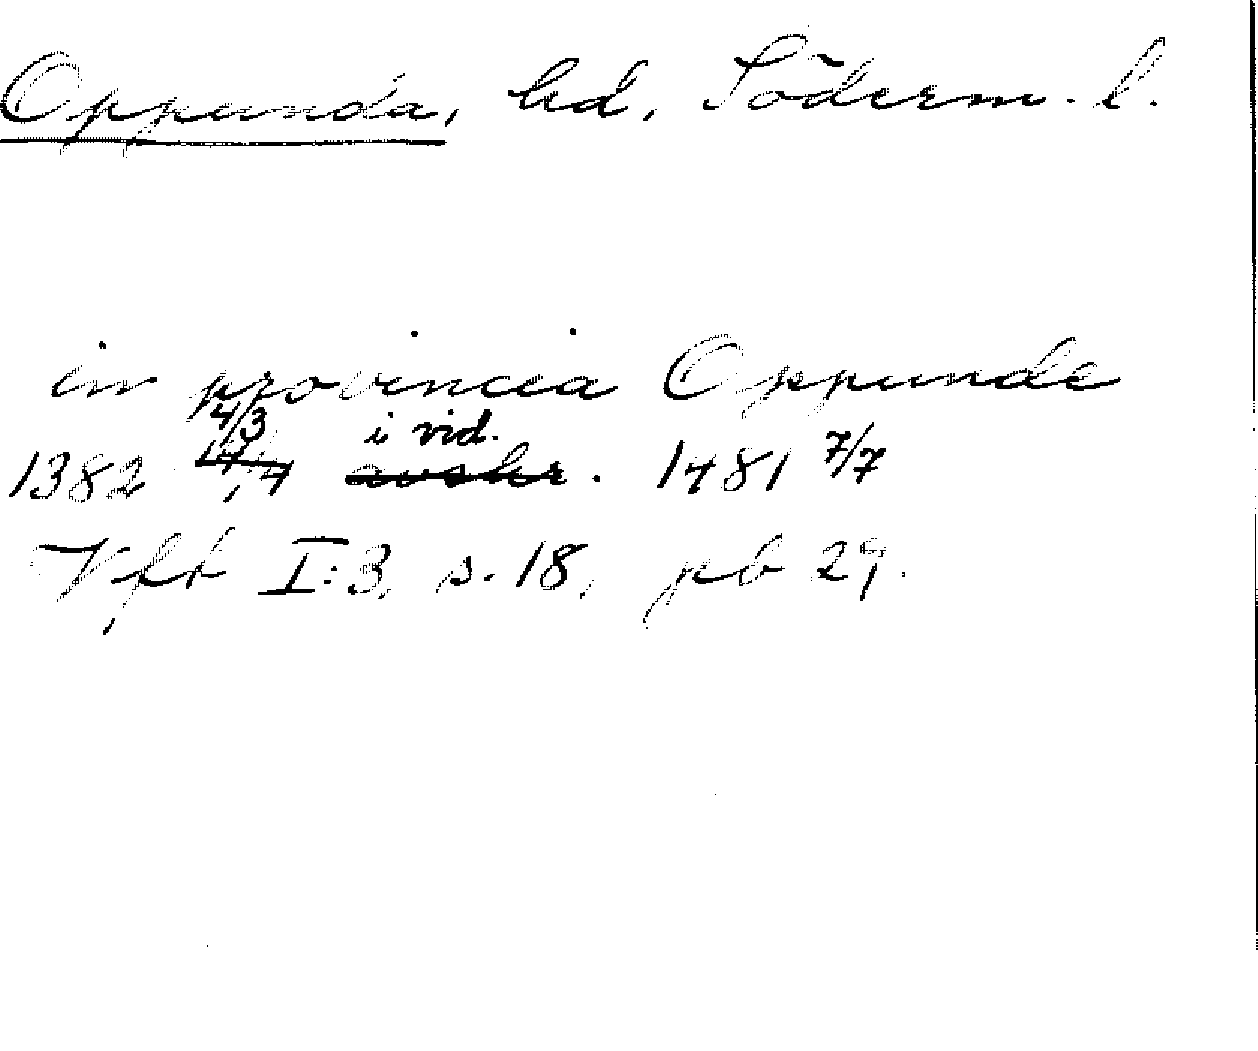 Oppunda, hd, Söderm. l.
in provincia Oppunde
4/3 i vid.
1382 avskr. 1481 7/7
Vft I:3, s. 18, pb 29.